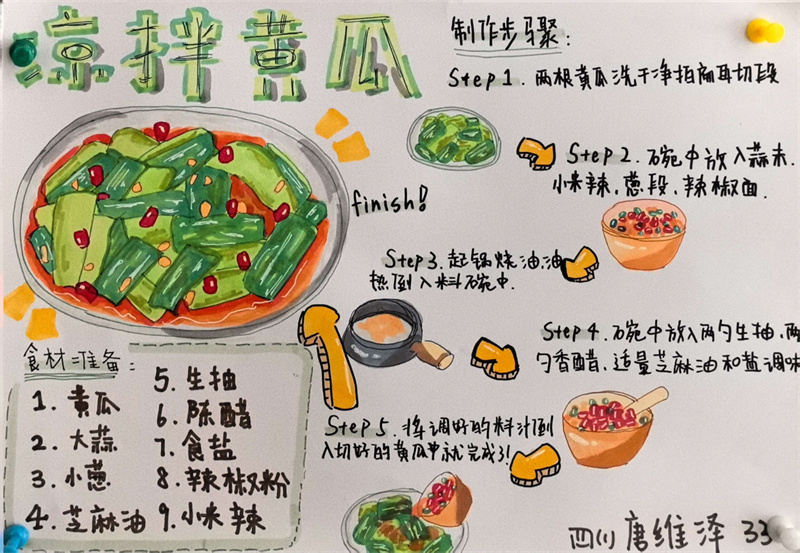 凉拌黄瓜
制作步骤:
Step 1. 两根黄瓜洗干净拍扁再切段
Step 2. 碗中放入蒜末.
小米辣、葱段、辣椒面.
finish!
Step 3. 起锅烧油油
热倒入料碗中.
Step 4. 碗中放入两勺生抽、两
勺香醋、适量芝麻油和盐调味
Step 5. 将调好的料汁倒
入切好的黄瓜中就完成了!
食材准备:
1. 黄瓜
2. 大蒜
3. 小葱
4. 芝麻油
5. 生抽
6. 陈醋
7. 食盐
8. 辣椒粉
9. 小米辣
四川 唐维泽 33